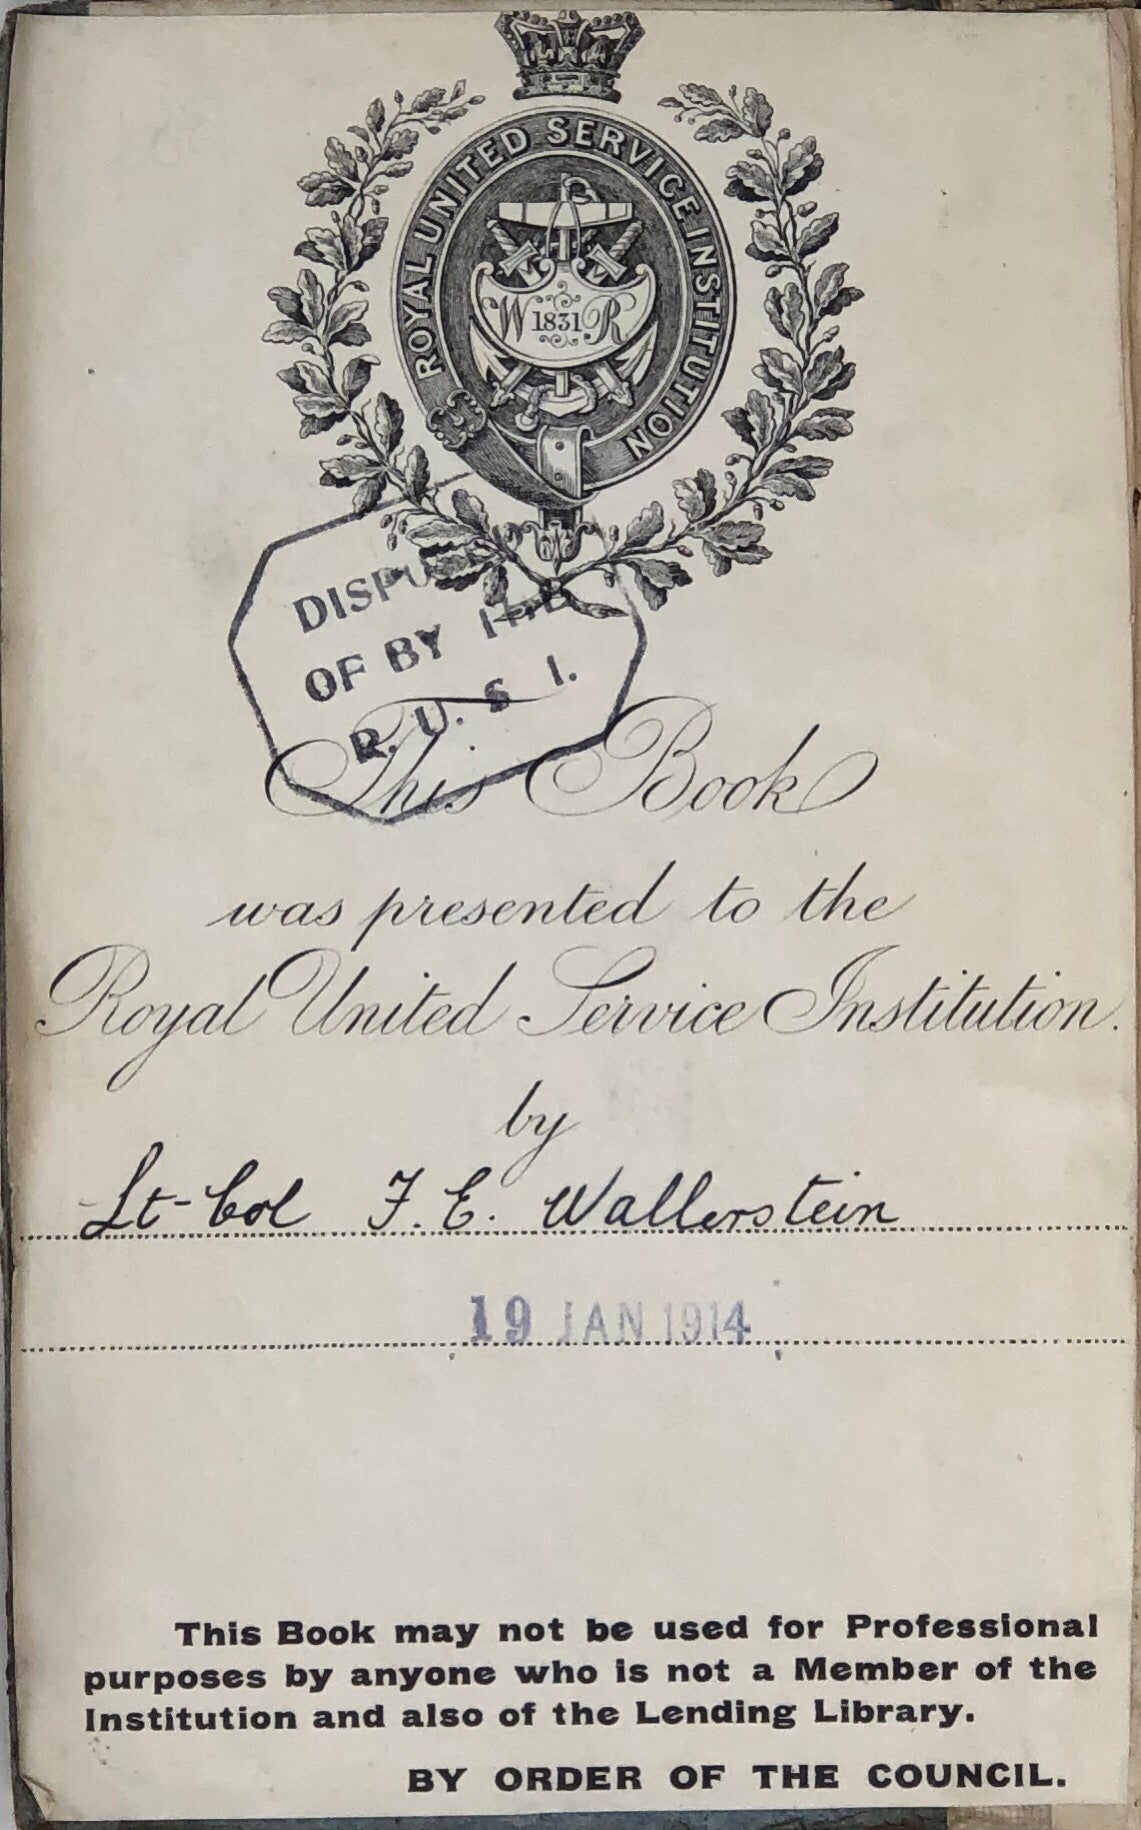 ROYAL UNITED SERVICE INSTITUTION
W 1831 R
OF BY THE
R. U. S. I.
This Book
was presented to the
Royal United Service Institution.
by
Lt-Col F. E. Wallerstein
19 JAN 1914
This Book may not be used for Professional
purposes by anyone who is not a Member of the
Institution and also of the Lending Library.
BY ORDER OF THE COUNCIL.